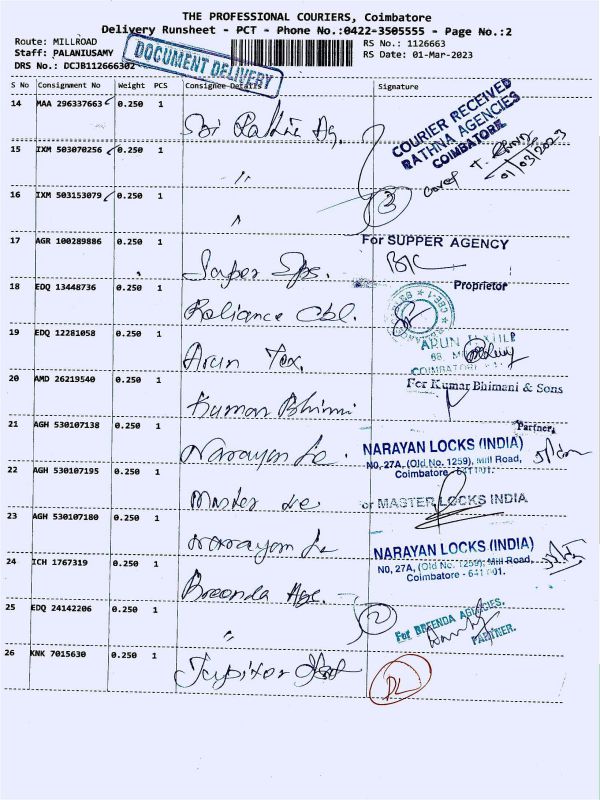 THE PROFESSIONAL COURIERS, Coimbatore
Delivery Runsheet - PCT - Phone No.:0422-3505555 - Page No.:2
Route: MILLROAD
RS No.: 1126663
Staff: PALANIUSAMY
RS Date: 01-Mar-2023
DRS No.: DCJB112666302
DOCUMENT DELIVERY
S No Consignment No Weight PCS Consignee Details Signature
14 MAA 296337663 0.250 1 Sri Rathna Ag.
COURIER RECEIVED
RATHNA AGENCIES
COIMBATORE
01/03/2023
15 IXM 503070256 0.250 1 "
16 IXM 503153079 0.250 1 "
3
17 AGR 100289886 0.250 1 Super Ags.
For SUPPER AGENCY
Proprietor
18 EDQ 13448736 0.250 1 Reliance Cbl.
19 EDQ 12281058 0.250 1 Arun Tex.
ARUN TEXTILE
COIMBATORE
20 AMD 26219540 0.250 1 Kumar Bhimni
For Kumar Bhimani & Sons
Partner
21 AGH 530107138 0.250 1 Narayan Lo.
NARAYAN LOCKS (INDIA)
NO, 27A, (Old No. 1259), Mill Road,
Coimbatore - 641 001.
22 AGH 530107195 0.250 1 Master Lo
or MASTER LOCKS INDIA
23 AGH 530107180 0.250 1 Narayan Lo
NARAYAN LOCKS (INDIA)
NO, 27A, (Old No. 1259), Mill Road,
Coimbatore - 641 001.
24 ICH 1767319 0.250 1 Breenda Age.
25 EDQ 24142206 0.250 1 "
2
For BREENDA AGENCIES.
PARTNER.
26 KNK 7015630 0.250 1 Jupitor
DL